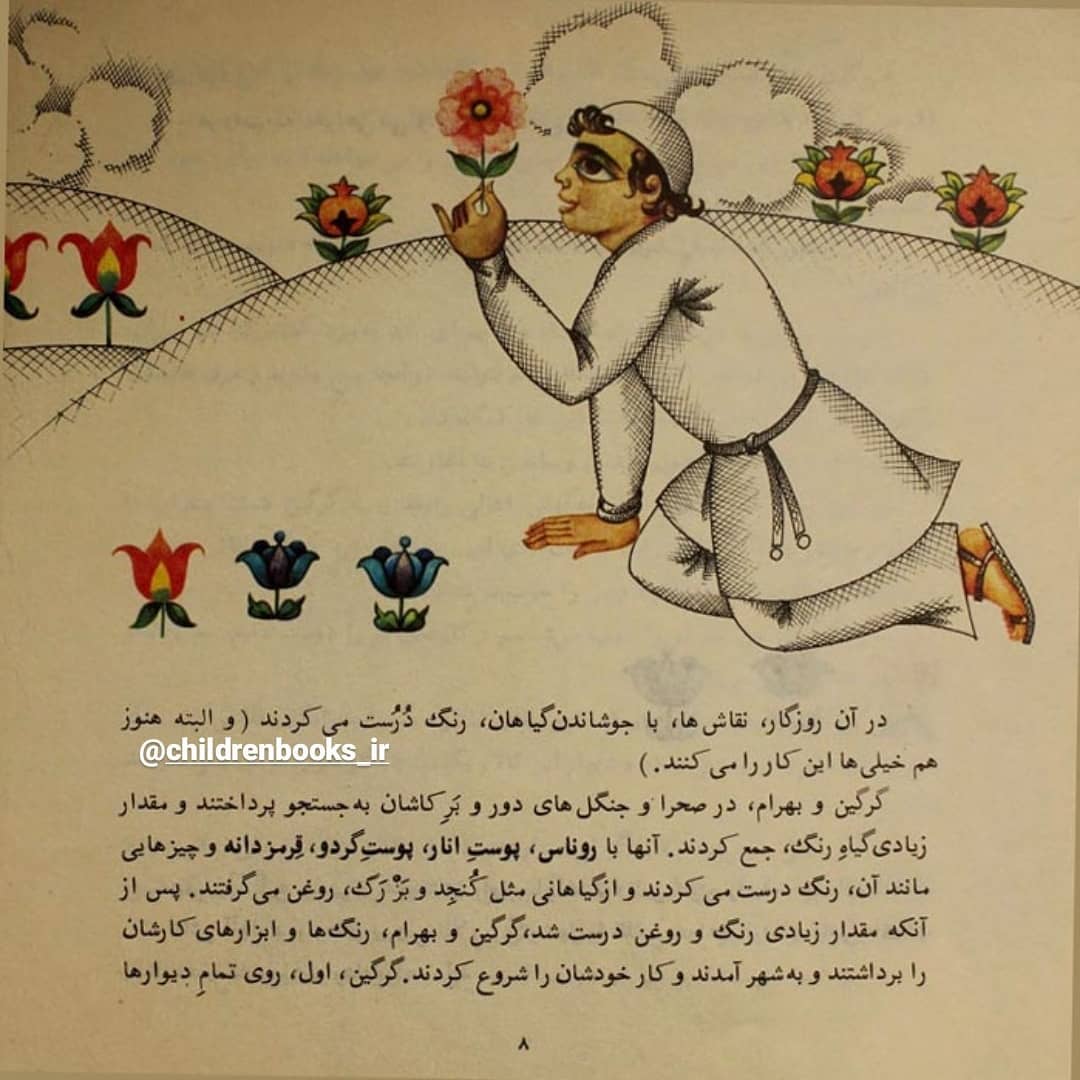 در آن روزگار، نقاش‌ها، با جوشاندن گیاهان، رنگ دُرُست می‌کردند (و البته هنوز
@childrenbooks_ir
هم خیلی‌ها این کار را می‌کنند.)
گرگین و بهرام، در صحرا و جنگل‌های دور و بَرِ کاشان به‌جستجو پرداختند و مقدار
زیادی گیاهِ رنگ، جمع کردند. آنها با روناس، پوستِ انار، پوستِ گردو، قِرمزدانه و چیزهایی
مانند آن، رنگ درست می‌کردند و از گیاهانی مثل کُنجِد و بَزْرَک، روغن می‌گرفتند. پس از
آنکه مقدار زیادی رنگ و روغن درست شد،گرگین و بهرام، رنگ‌ها و ابزارهای کارشان
را برداشتند و به‌شهر آمدند و کار خودشان را شروع کردند.گرگین، اول، روی تمامِ دیوارها
۸